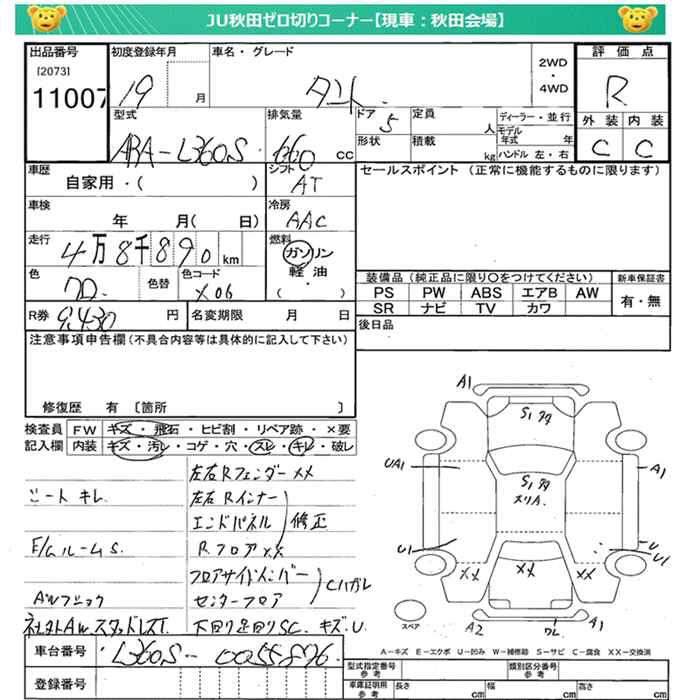 JU秋田ゼロ切りコーナー【現車：秋田会場】
出品番号 初度登録年月 車名・グレード 評価点
[2073]
11007 19 月 タント 2WD・4WD R
型式 排気量 ドア 定員 ディーラー・並行 外装 内装
ABA-L360S 660 cc 5 人 モデル年式 年 C C
形状 積載 kg ハンドル 左・右
車歴 シフト セールスポイント (正常に機能するものに限ります)
自家用・( ) AT
車検 冷房
年 月( 日) AAC
走行 燃料
4万8千890km ガソリン
色 色替 色コード 軽油・
クロ X06 ( )
装備品 (純正品に限り○をつけてください) 新車保証書
PS PW ABS エアB AW 有・無
SR ナビ TV カワ
R券 9,430円 名変期限 月 日
後日品
注意事項申告欄(不具合内容等は具体的に記入して下さい)
修復歴 有 [箇所 ]
検査員 FW キズ・飛石・ヒビ割・リペア跡・×要
記入欄 内装 キズ・汚レ・コゲ・穴・スレ・キレ・破レ
左右Rフェンダー××
シートキレ 左右Rインナー
エンドパネル 修正
E/GルームS. Rフロア××
フロアサイドメンバー
センターフロア Cハガレ
下回り足回りSC. キズ.U
A1
S1
UA1 S1 A1
スリA.
U1 U U1
×× ×× ××
A2 A1
スペア
A－キズ E－エクボ U－凹み W－補修跡 S－サビ C－腐食 XX－交換済
車台番号 L360S-0055896
登録番号
型式指定番号 参考 類別区分番号 参考
車庫証明用 参考 長さ cm 幅 cm 高さ cm